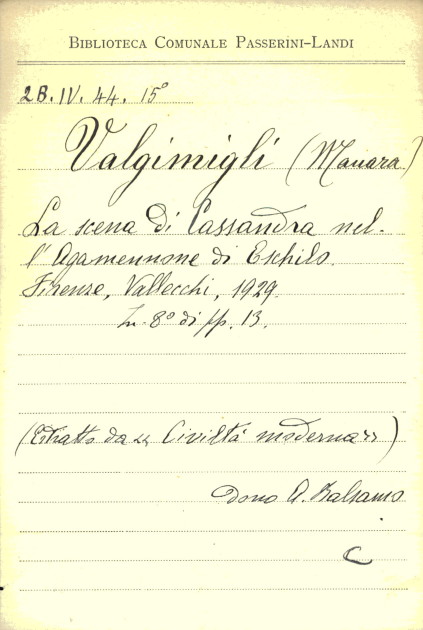 BIBLIOTECA COMUNALE PASSERINI-LANDI
2B.IV.44.15°
Valgimigli (Manara)
La scena di Cassandra nel-
l'Agamennone di Eschilo.
Firenze, Vallecchi, 1929.
In-8° di pp. 13.
(Estratto da « Civiltà moderna »)
Dono A. Balsamo
C